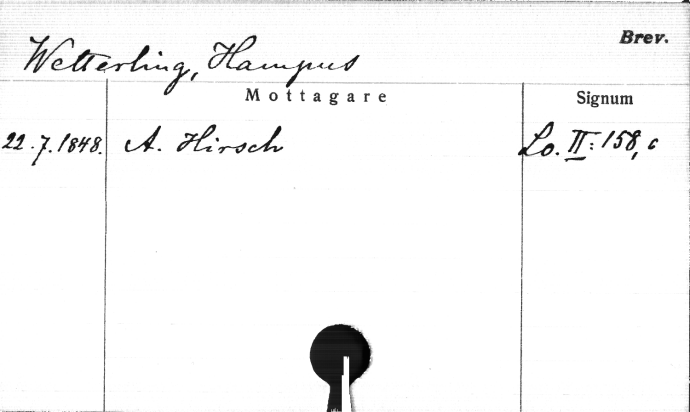 Brev.
Wetterling, Hampus
Mottagare Signum
22.7.1848. A. Hirsch Lo. II: 158, c